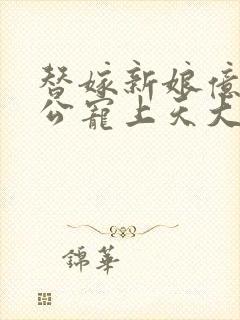 替嫁新娘億
公寵上天大
錦華